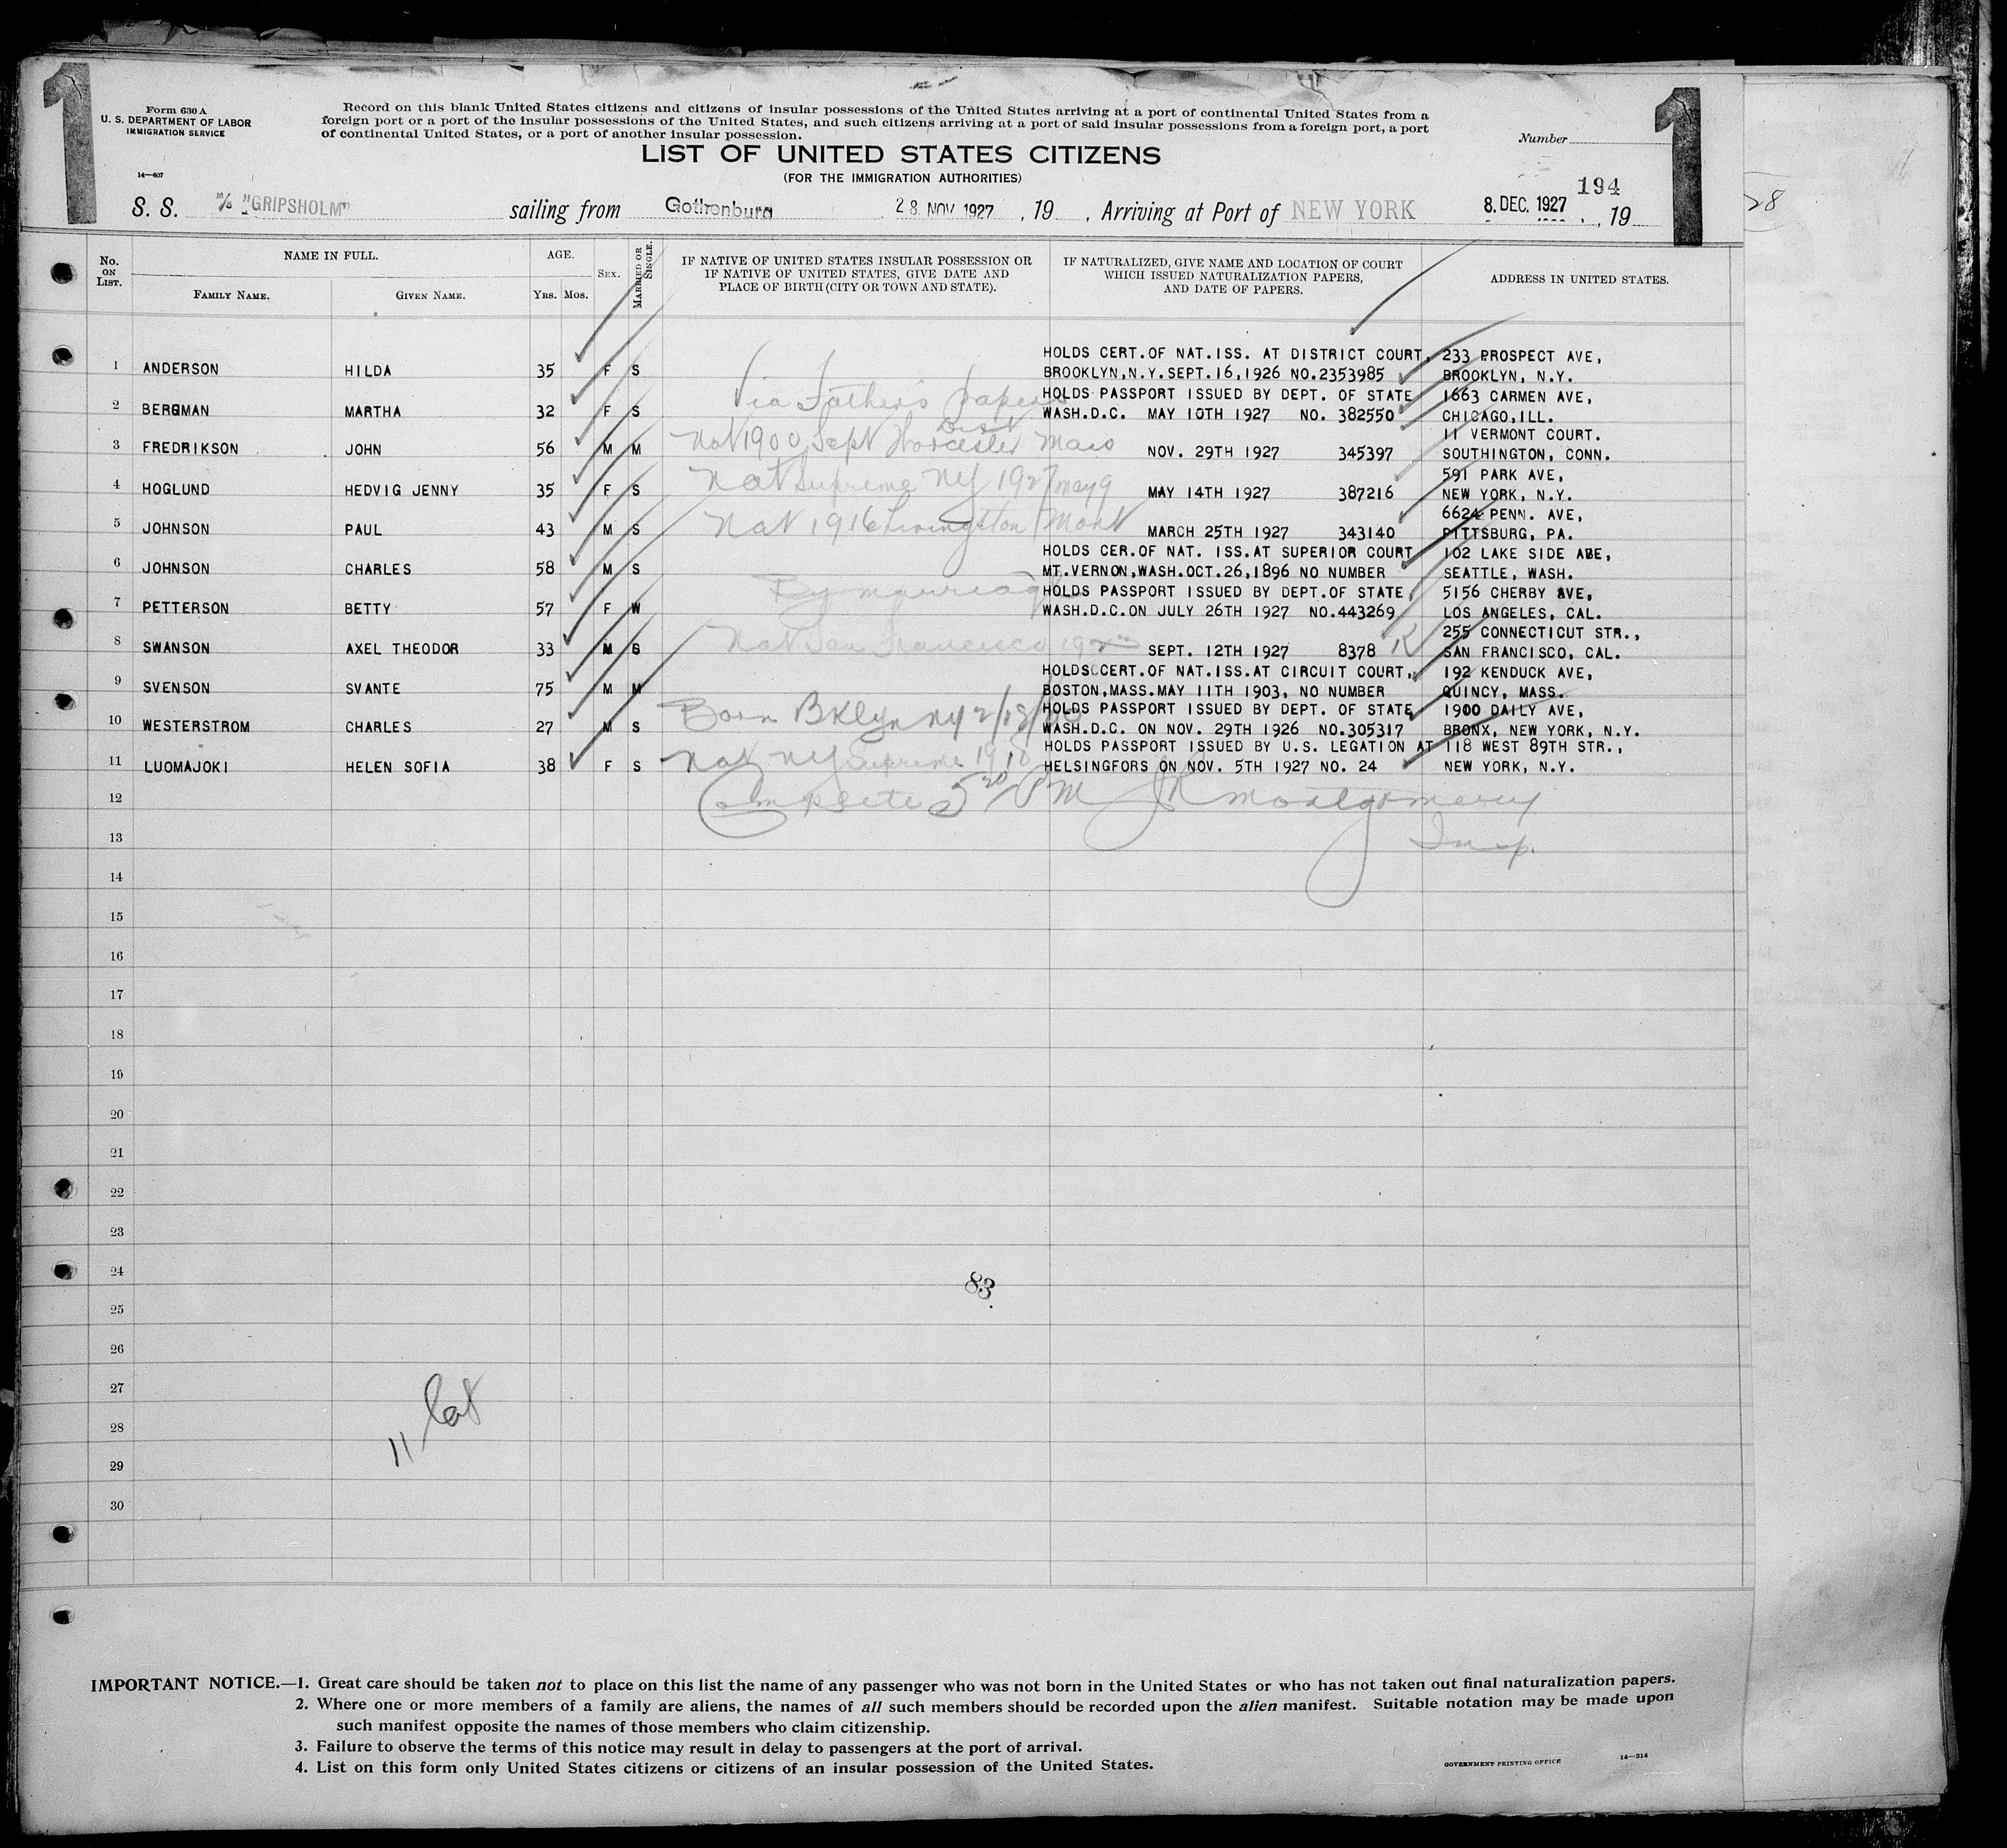 1
1
Form 630 A
U. S. DEPARTMENT OF LABOR
IMMIGRATION SERVICE
14—607
Record on this blank United States citizens and citizens of insular possessions of the United States arriving at a port of continental United States from a
foreign port or a port of the insular possessions of the United States, and such citizens arriving at a port of said insular possessions from a foreign port, a port
of continental United States, or a port of another insular possession.
Number
LIST OF UNITED STATES CITIZENS
(FOR THE IMMIGRATION AUTHORITIES)
194
28
S. S. M/S "GRIPSHOLM" sailing from Gothenburg 28 NOV 1927, 19 , Arriving at Port of NEW YORK 8. DEC. 1927, 19
No. ON LIST.
NAME IN FULL.
FAMILY NAME.
GIVEN NAME.
AGE.
YRS. MOS.
SEX.
MARRIED OR SINGLE.
IF NATIVE OF UNITED STATES INSULAR POSSESSION OR
IF NATIVE OF UNITED STATES, GIVE DATE AND
PLACE OF BIRTH (CITY OR TOWN AND STATE).
IF NATURALIZED, GIVE NAME AND LOCATION OF COURT
WHICH ISSUED NATURALIZATION PAPERS,
AND DATE OF PAPERS.
ADDRESS IN UNITED STATES.
HOLDS CERT.OF NAT.ISS. AT DISTRICT COURT, 233 PROSPECT AVE,
1 ANDERSON HILDA 35 F S BROOKLYN,N.Y.SEPT.16,1926 NO.2353985 BROOKLYN, N.Y.
Via Father's papers HOLDS PASSPORT ISSUED BY DEPT. OF STATE 1663 CARMEN AVE,
2 BERGMAN MARTHA 32 F S WASH.D.C. MAY 10TH 1927 NO. 382550 CHICAGO,ILL.
Dist 11 VERMONT COURT.
3 FREDRIKSON JOHN 56 M M Nat 1900 Sept Worcester Mass NOV. 29TH 1927 345397 SOUTHINGTON, CONN.
591 PARK AVE,
4 HOGLUND HEDVIG JENNY 35 F S Nat Supreme NY 1927 May 9 MAY 14TH 1927 387216 NEW YORK, N.Y.
6624 PENN. AVE,
5 JOHNSON PAUL 43 M S Nat 1916 Livingston Mont MARCH 25TH 1927 343140 PITTSBURG, PA.
HOLDS CER.OF NAT. ISS.AT SUPERIOR COURT 102 LAKE SIDE ABE,
6 JOHNSON CHARLES 58 M S MT.VERNON,WASH.OCT.26,1896 NO NUMBER SEATTLE, WASH.
By marriage HOLDS PASSPORT ISSUED BY DEPT.OF STATE, 5156 CHERBY AVE,
7 PETTERSON BETTY 57 F W WASH.D.C.ON JULY 26TH 1927 NO.443269 LOS ANGELES, CAL.
255 CONNECTICUT STR.,
8 SWANSON AXEL THEODOR 33 M S Nat San Francisco SEPT. 12TH 1927 8378 R SAN FRANCISCO, CAL.
HOLDS CERT.OF NAT.ISS.AT CIRCUIT COURT, 192 KENDUCK AVE,
9 SVENSON SVANTE 75 M M BOSTON,MASS.MAY 11TH 1903, NO NUMBER QUINCY, MASS.
HOLDS PASSPORT ISSUED BY DEPT. OF STATE 1900 DAILY AVE,
10 WESTERSTROM CHARLES 27 M S Born Bklyn NY WASH.D.C. ON NOV. 29TH 1926 NO.305317 BRONX, NEW YORK, N.Y.
HOLDS PASSPORT ISSUED BY U.S. LEGATION AT 118 WEST 89TH STR.,
11 LUOMAJOKI HELEN SOFIA 38 F S Nat NY Supreme 1918 HELSINGFORS ON NOV. 5TH 1927 NO. 24 NEW YORK, N.Y.
12 Complete 5 20 PM JR Montgomery
13 Insp.
14
15
16
17
18
19
20
21
22
23
24 83.
25
26
27
28
11
29
30
IMPORTANT NOTICE.—1. Great care should be taken not to place on this list the name of any passenger who was not born in the United States or who has not taken out final naturalization papers.
2. Where one or more members of a family are aliens, the names of all such members should be recorded upon the alien manifest. Suitable notation may be made upon
such manifest opposite the names of those members who claim citizenship.
3. Failure to observe the terms of this notice may result in delay to passengers at the port of arrival.
4. List on this form only United States citizens or citizens of an insular possession of the United States.
GOVERNMENT PRINTING OFFICE 14—214